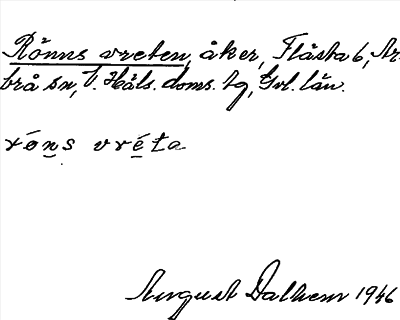 Rönns vreten, åker, Flästa 6, Ar-
brå sn, V. Häls. doms. tg, Gvl. län.
rón̲s vré̲ta
August Dalhem 1946